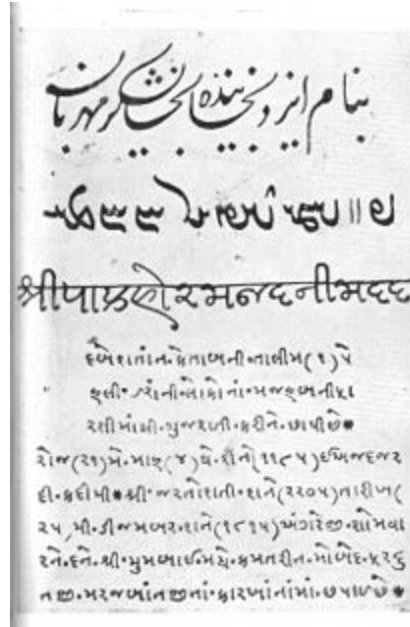 بنام ایزد بخشاینده بخشایشگر مهربان
શ્રીપાક હોરમજદનીમદદ
દબેશતાંન·કેતાબની·તાલીમ(૧)પે
હલી·લોકોનાં·મજહબની·ફા
રશીમાંથી·ગુજરાતી·કરીને·છાપીછે●
રોજ(૨૧)મે·માહ(૪)થે·(૧૧૮૫)ઈઅજદજર
દી·કદીમી●શ્રી·જરતોશતી·શને(૨૨૦૫)તારીખ(
૨૫)મી·ડીજમબર·શને(૧૮૧૫)અંગરેજી·શોમવા
રને·દને·શ્રી·મુમબાઈમધે·કમતરીન·મોબેદ·ફરદુ
નજી·મરજબાંનજીનાં·કારખાંનાંમાં·છપાઈછે●